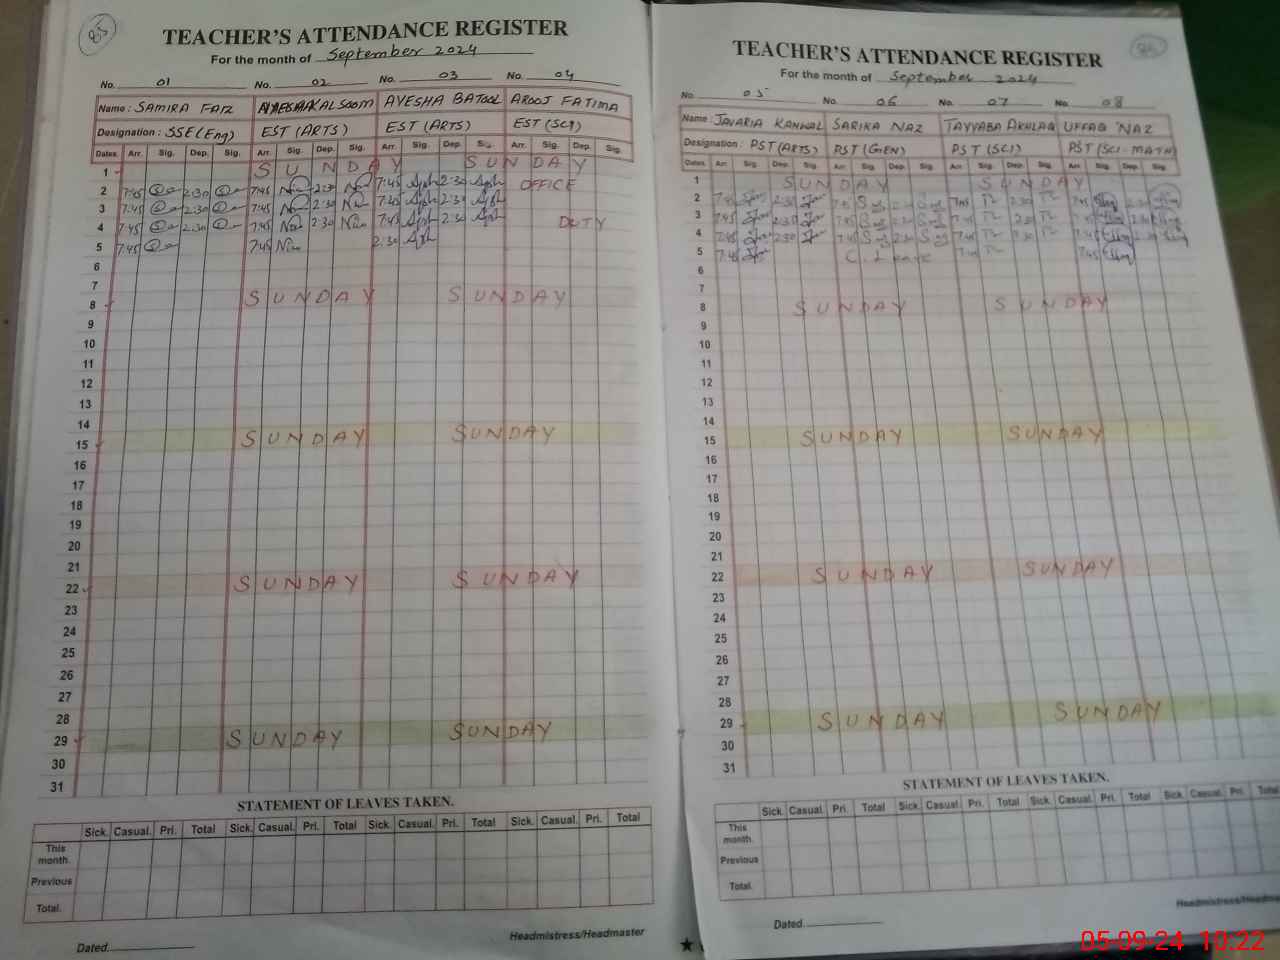 85
TEACHER'S ATTENDANCE REGISTER
For the month of September 2024
No. 01 No. 02 No. 03 No. 04
Name : SAMIRA FAIZ KALSOOM AYESHA BATOOL AROOJ FATIMA
Designation : SSE (Eng) EST (ARTS) EST (ARTS) EST (SCI)
Dates. Arr. Sig. Dep. Sig. Arr. Sig. Dep. Sig. Arr. Sig. Dep. Sig. Arr. Sig. Dep. Sig.
1 SUNDAY SUNDAY
2 7:45 2:30 7:45 2:30 7:45 2:30 OFFICE
3 7:45 2:30 7:45 2:30 7:45 2:30
4 7:45 2:30 7:45 2:30 7:45 2:30 DUTY
5 7:45 7:45 2:30
6
7
8 SUNDAY SUNDAY
9
10
11
12
13
14
15 SUNDAY SUNDAY
16
17
18
19
20
21
22 SUNDAY SUNDAY
23
24
25
26
27
28
29 SUNDAY SUNDAY
30
31
STATEMENT OF LEAVES TAKEN.
Sick. Casual. Pri. Total Sick. Casual. Pri. Total Sick. Casual. Pri. Total Sick. Casual. Pri. Total
This month.
Previous
Total.
Dated.
Headmistress/Headmaster
TEACHER'S ATTENDANCE REGISTER
For the month of September 2024
No. 05 No. 06 No. 07 No. 08
Name : JAVARIA KANWAL SARIKA NAZ TAYYABA AKHLAQ UFFAQ NAZ
Designation : PST (ARTS) PST (GEN) PST (SCI) PST (SCI-MATH)
Dates Arr. Sig. Dep. Sig. Arr. Sig. Dep. Sig. Arr. Sig. Dep. Sig. Arr. Sig. Dep. Sig.
1 SUNDAY SUNDAY
2 7:45 2:30 7:45 2:30 7:45 2:30 7:45 2:30
3 7:45 2:30 7:45 2:30 7:45 2:30 7:45 2:30
4 7:45 2:30 7:45 2:30 7:45 2:30 7:45 2:30
5 7:45 C. Leave 7:45 7:45
6
7
8 SUNDAY SUNDAY
9
10
11
12
13
14
15 SUNDAY SUNDAY
16
17
18
19
20
21
22 SUNDAY SUNDAY
23
24
25
26
27
28
29 SUNDAY SUNDAY
30
31
STATEMENT OF LEAVES TAKEN.
Sick. Casual. Pri. Total Sick. Casual. Pri. Total Sick. Casual. Pri. Total Sick. Casual. Pri. Total
This month.
Previous
Total.
Dated.
05-09-24 10:22